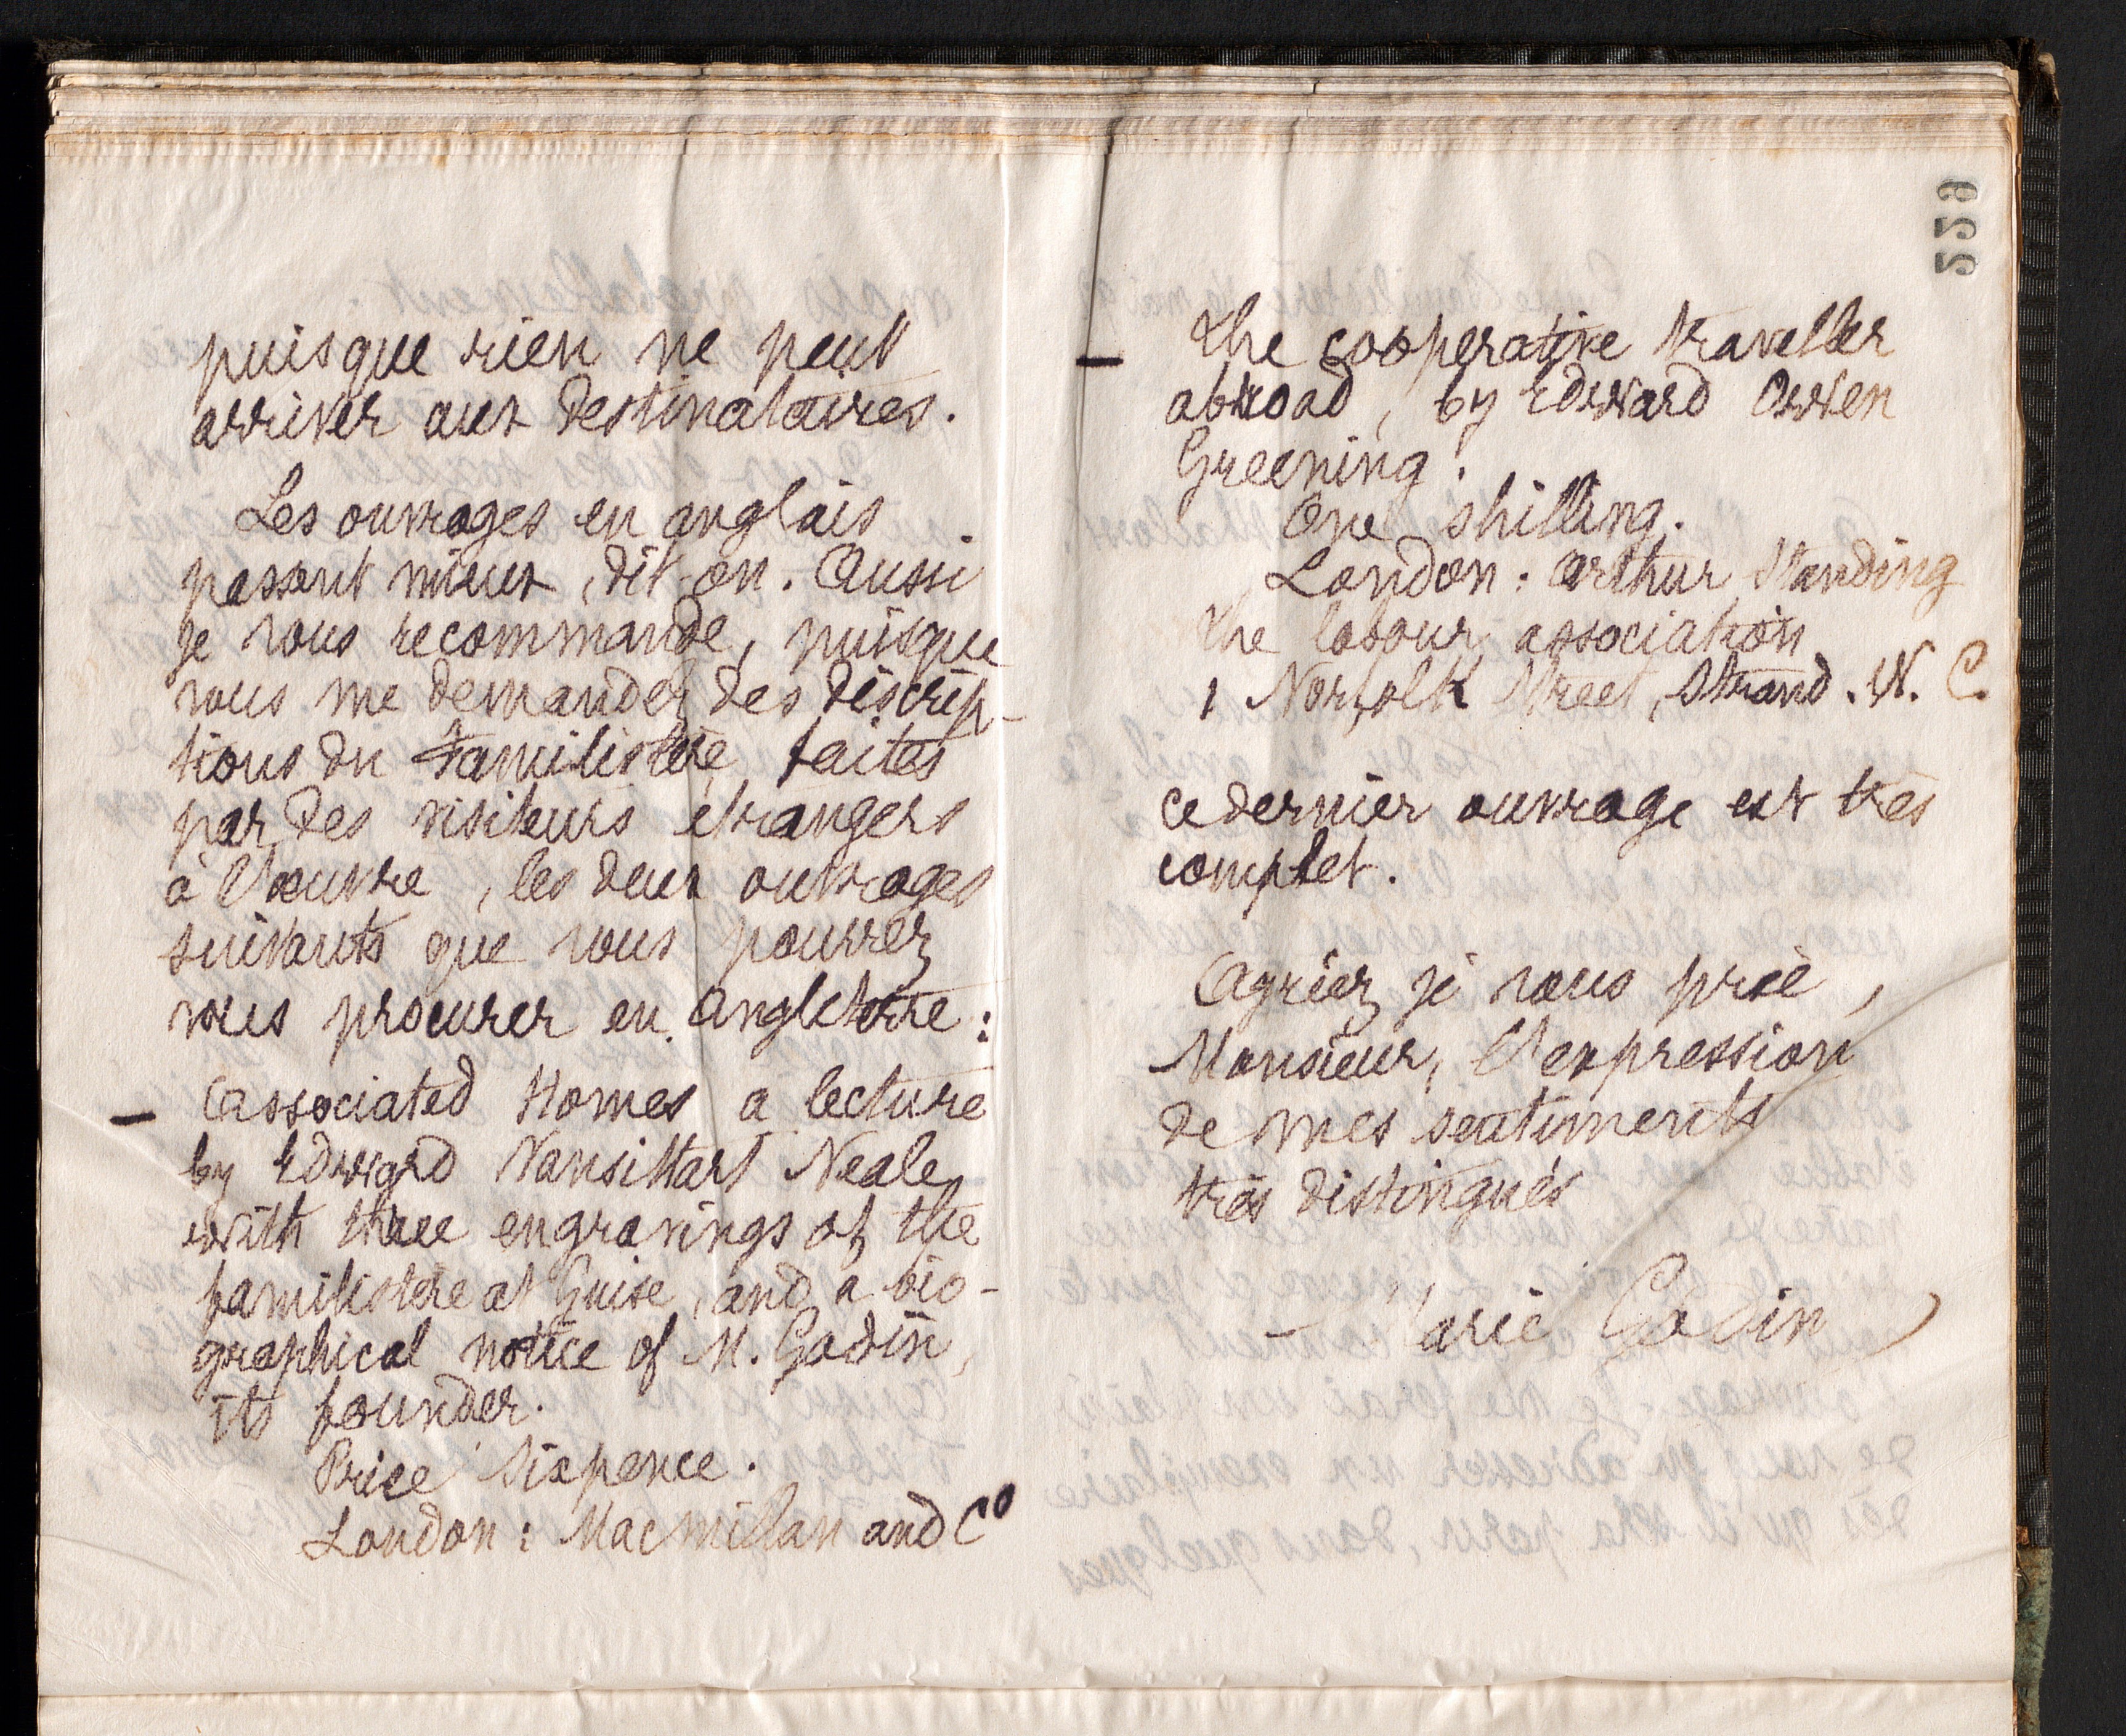 puisque rien ne peut
arriver aux destinataires.
Les ouvrages en anglais
passent mieux, dit-on. Aussi
je vous recommande, puisque
vous me demandez des descrip-
tions du Familistère faites
par des visiteurs étrangers
à l'œuvre, les deux ouvrages
suivants que vous pourrez
vous procurer en Angleterre :
– Associated Homes a lecture
by Edward Vansittart Neale
with three engravings of the
familistère at Guise, and a bio-
graphical notice of M. Godin,
its founder.
Price Sixpence.
London : Macmillan and Co
559
– The cooperative traveller
abroad, by Edward Owen
Greening.
One shilling.
London : Arthur Standing
the labour association
1 Norfolk Street, Strand. W. C.
ce dernier ouvrage est très
complet.
Agréez je vous prie,
Monsieur, l'expression
de mes sentiments
très distingués
Marie Godin